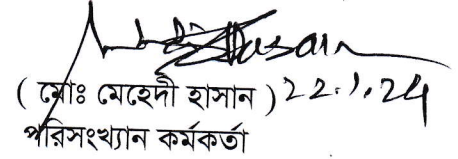 Hasan
( মোঃ মেহেদী হাসান ) 22.1.24
পরিসংখ্যান কর্মকর্তা